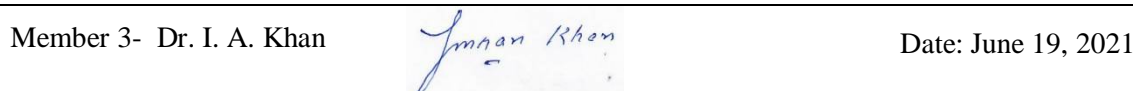 Member 3- Dr. I. A. Khan Imran Khan Date: June 19, 2021